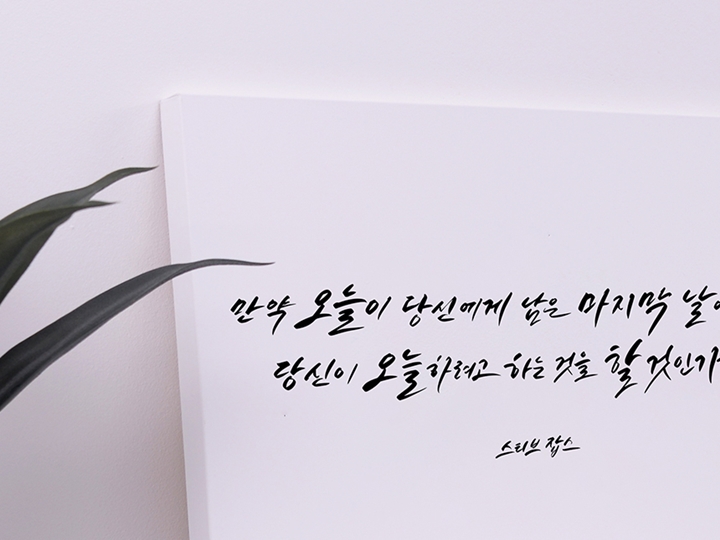 만약 오늘이 당신에게 남은 마지막 날
당신이 오늘하려고 하는 것을 할 것인가
스티브 잡스